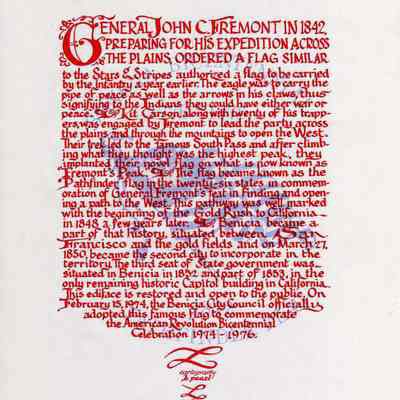 GENERAL JOHN C. FREMONT IN 1842,
PREPARING FOR HIS EXPEDITION ACROSS
THE PLAINS, ORDERED A FLAG SIMILAR
to the Stars & Stripes authorized a flag to be carried
by the Infantry a year earlier. The eagle was to carry the
pipe of peace as well as the arrows in his claws, thus
signifying to the Indians they could have either war or
peace. Kit Carson, along with twenty of his trapp-
ers, was engaged by Fremont to lead the party across
the plains and through the mountains to open the West.
Their trek led to the famous South Pass and after climb-
ing what they thought was the highest peak, they
implanted their novel flag on what is now known as
Fremont's Peak. The flag became known as the
Pathfinder flag in the twenty-six states in commem-
oration of General Fremont's feat in finding and open-
ing a path to the West. This pathway was well marked
with the beginning of the Gold Rush to California
in 1848, a few years later. Benicia became a
part of that history, situated between San
Francisco and the gold fields and on March 27,
1850, became the second city to incorporate in the
territory. The third seat of State government was
situated in Benicia in 1852 and part of 1853, in the
only remaining historic Capitol building in California.
This edifice is restored and open to the public. On
February 15, 1974, the Benicia City Council officially
adopted this famous flag to commemorate
the American Revolution Bicentennial
Celebration 1974-1976.